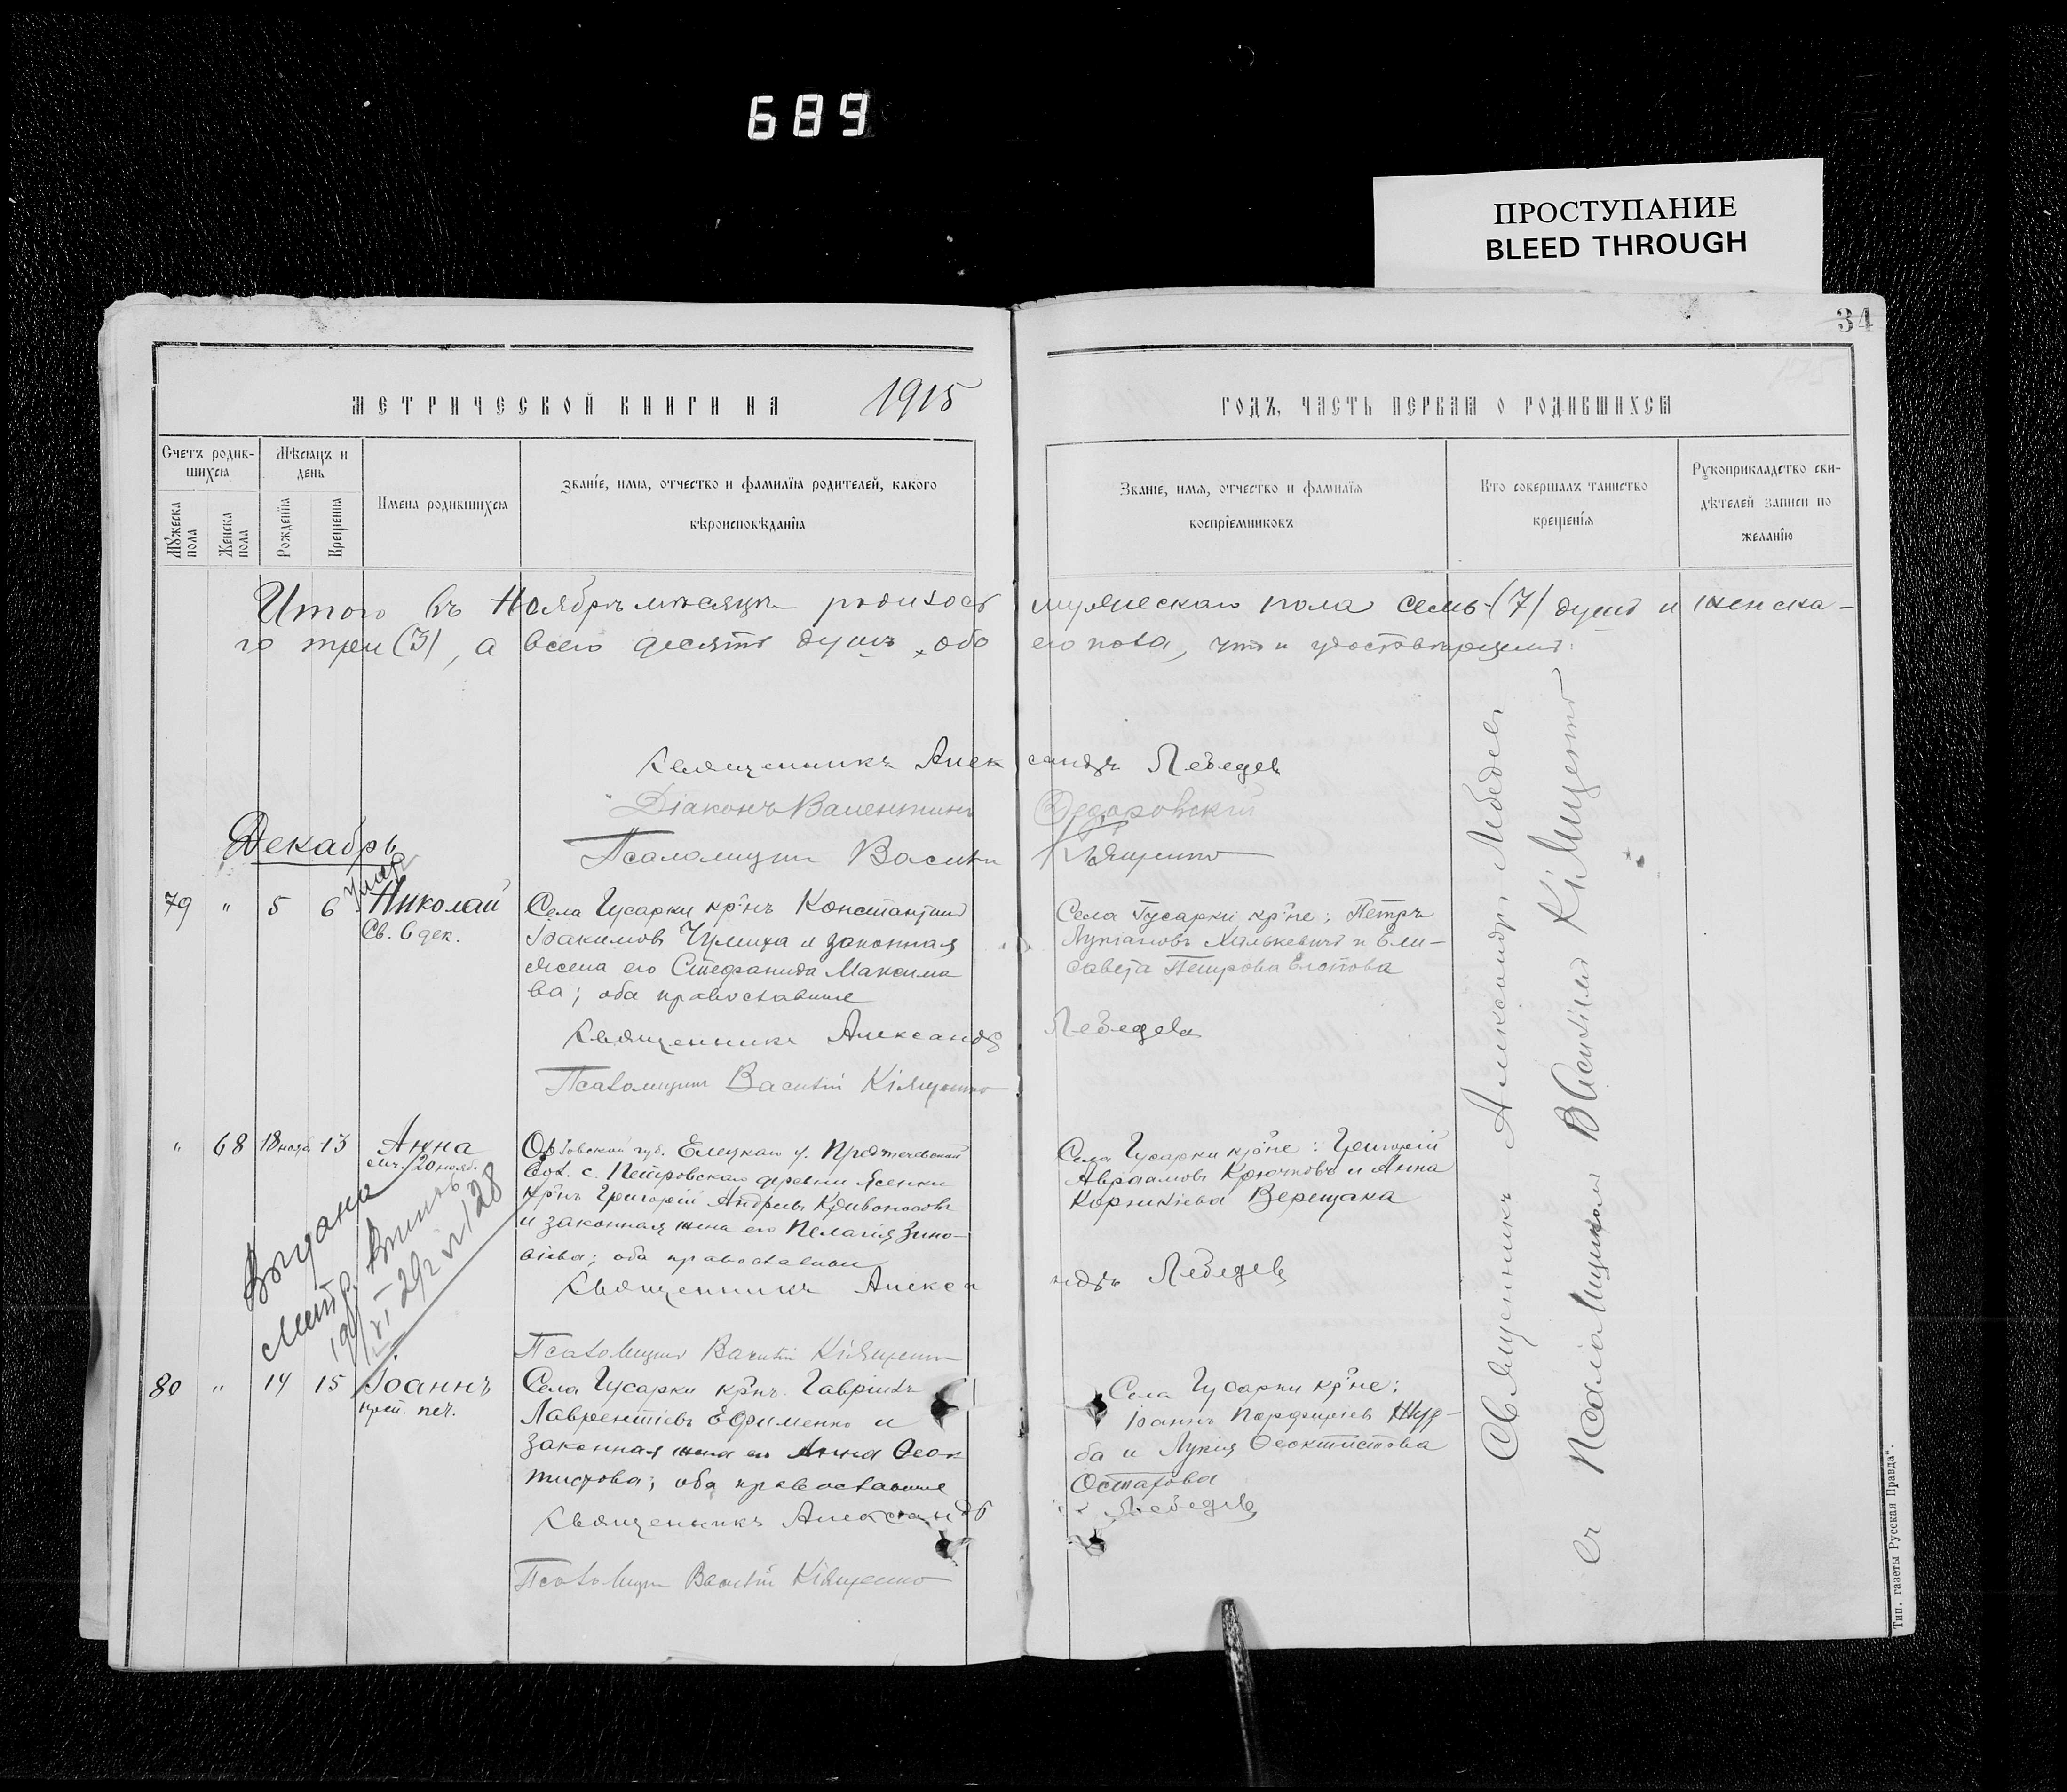 689
ПРОСТУПАНИЕ
BLEED THROUGH
34
МЕТРИЧЕСКОЙ КНИГИ НА 1915 ГОДЪ, ЧАСТЬ ПЕРВАЯ О РОДИВШИХСЯ
Счетъ родившихся
Мѣсяцъ и день
Мужеска пола
Женска пола
Рожденія
Крещенія
Имена родившихся
Званіе, имя, отчество и фамилія родителей, какого
вѣроисповѣданія
Званіе, имя, отчество и фамилія
воспріемниковъ
Кто совершалъ таинство
крещенія
Рукоприкладство сви-
дѣтелей записи по
желанію
Итого въ Ноябрѣ мѣсяцѣ родилось мужескаго пола семь (7) душъ и женска-
го три (3), а всего десять душъ обоего пола, что и удостовѣряемъ:
Священникъ Александръ Лебедев
Діаконъ Валентинъ Федоровскій
Псаломщикъ Василій Кіященко
Декабрь
умеръ
79 " 5 6 Николай
Св. 6 дек.
Села Гусарки кр-нъ Константинъ
Іоакимовъ Чумаха и законная
жена его Стефанида Максимо
ва; оба православные
Села Гусарки кр-не: Петръ
Лукіановъ Халькевичъ и Ели-
савета Петрова
Священникъ Александръ Лебедевъ
Псаломщикъ Василій Кіященко
" 68 18 нояб. 13 Анна
20 нояб.
Орловской губ. Елецкаго у. Предтечевской
вол. с. Петровскаго деревни Ясенки
кр-нъ Григорій Андреевъ Кривоносовъ
и законная жена его Пелагія Зино-
віева; оба православные
Села Гусарки кр-не: Григорій
Авраамовъ Крючковъ и Анна
Корниліева Верещака
Священникъ Александръ Лебедев
Псаломщикъ Василій Кіященко
Выдана
Метр. Выпись
80 " 14 15 Іоаннъ
Села Гусарки кр-нъ Гавріилъ
Лаврентіевъ Ефименко и
законная жена его Анна Феок
тистова; оба православные
Села Гусарки кр-не:
Іоаннъ Порфиріевъ
ба и Лукія Феоктистова
Остапова
Священникъ Александръ Лебедевъ
Псаломщикъ Василій Кіященко
Священникъ Александръ Лебедев
съ Псаломщикомъ Василіемъ Кіященко
Тип. газеты Русская Правда".